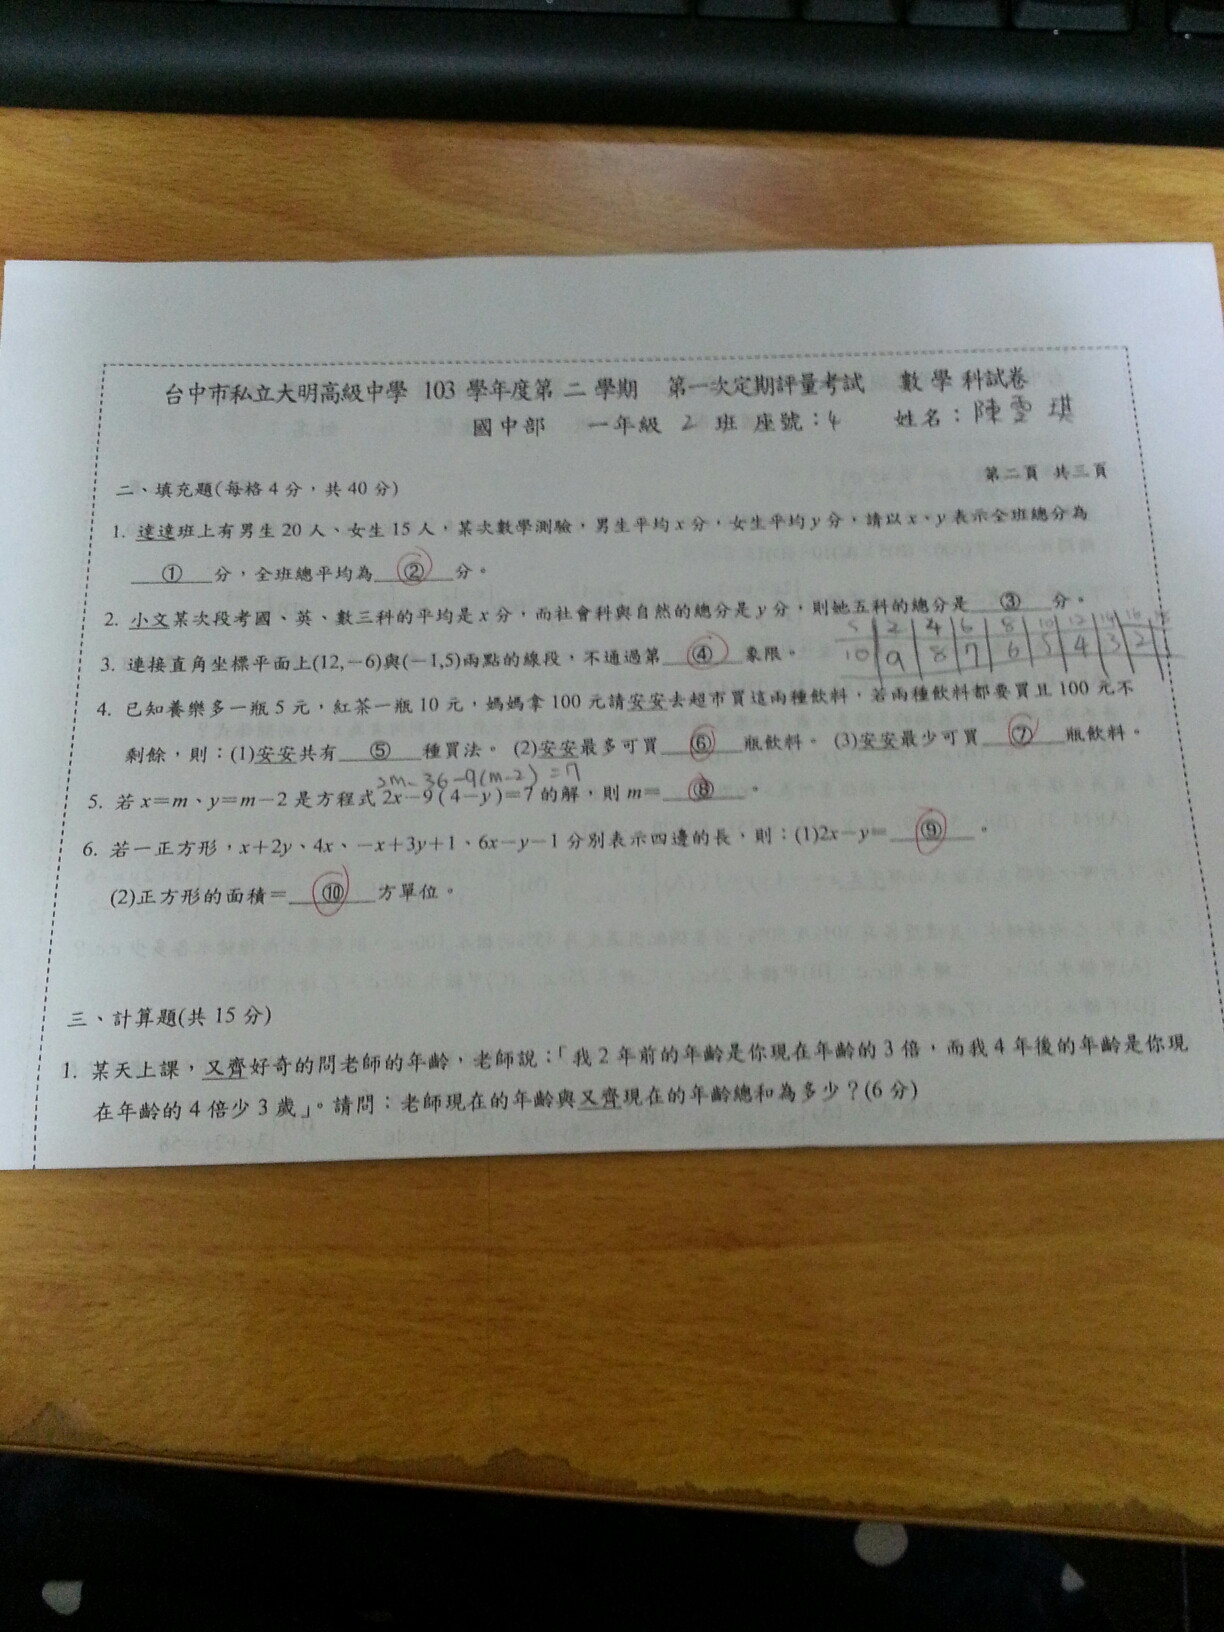 台中市私立大明高級中學 103 學年度第 二 學期 第一次定期評量考試 數 學 科試卷
國中部 一年級 2 班 座號：4 姓名：陳雯琪
第二頁 共三頁
二、填充題(每格 4 分，共 40 分)
1. 達達班上有男生 20 人、女生 15 人，某次數學測驗，男生平均 x 分，女生平均 y 分，請以 x、y 表示全班總分為
① 分，全班總平均為 ② 分。
2. 小文某次段考國、英、數三科的平均是 x 分，而社會科與自然的總分是 y 分，則她五科的總分是 ③ 分。
5 2 4 6 8 10 12 14 16 18
3. 連接直角坐標平面上(12,−6)與(−1,5)兩點的線段，不通過第 ④ 象限。
10 9 8 7 6 5 4 3 2 1
4. 已知養樂多一瓶 5 元，紅茶一瓶 10 元，媽媽拿 100 元請安安去超市買這兩種飲料，若兩種飲料都要買且 100 元不
剩餘，則：(1)安安共有 ⑤ 種買法。 (2)安安最多可買 ⑥ 瓶飲料。 (3)安安最少可買 ⑦ 瓶飲料。
2m-36-9(m-2)=7
5. 若 x＝m、y＝m−2 是方程式 2x−9(4−y)＝7 的解，則 m＝ ⑧ 。
6. 若一正方形，x＋2y、4x、−x＋3y＋1、6x−y−1 分別表示四邊的長，則：(1)2x−y＝ ⑨ 。
(2)正方形的面積＝ ⑩ 方單位。
三、計算題(共 15 分)
1. 某天上課，又齊好奇的問老師的年齡，老師說：「我 2 年前的年齡是你現在年齡的 3 倍，而我 4 年後的年齡是你現
在年齡的 4 倍少 3 歲」。請問：老師現在的年齡與又齊現在的年齡總和為多少？(6 分)